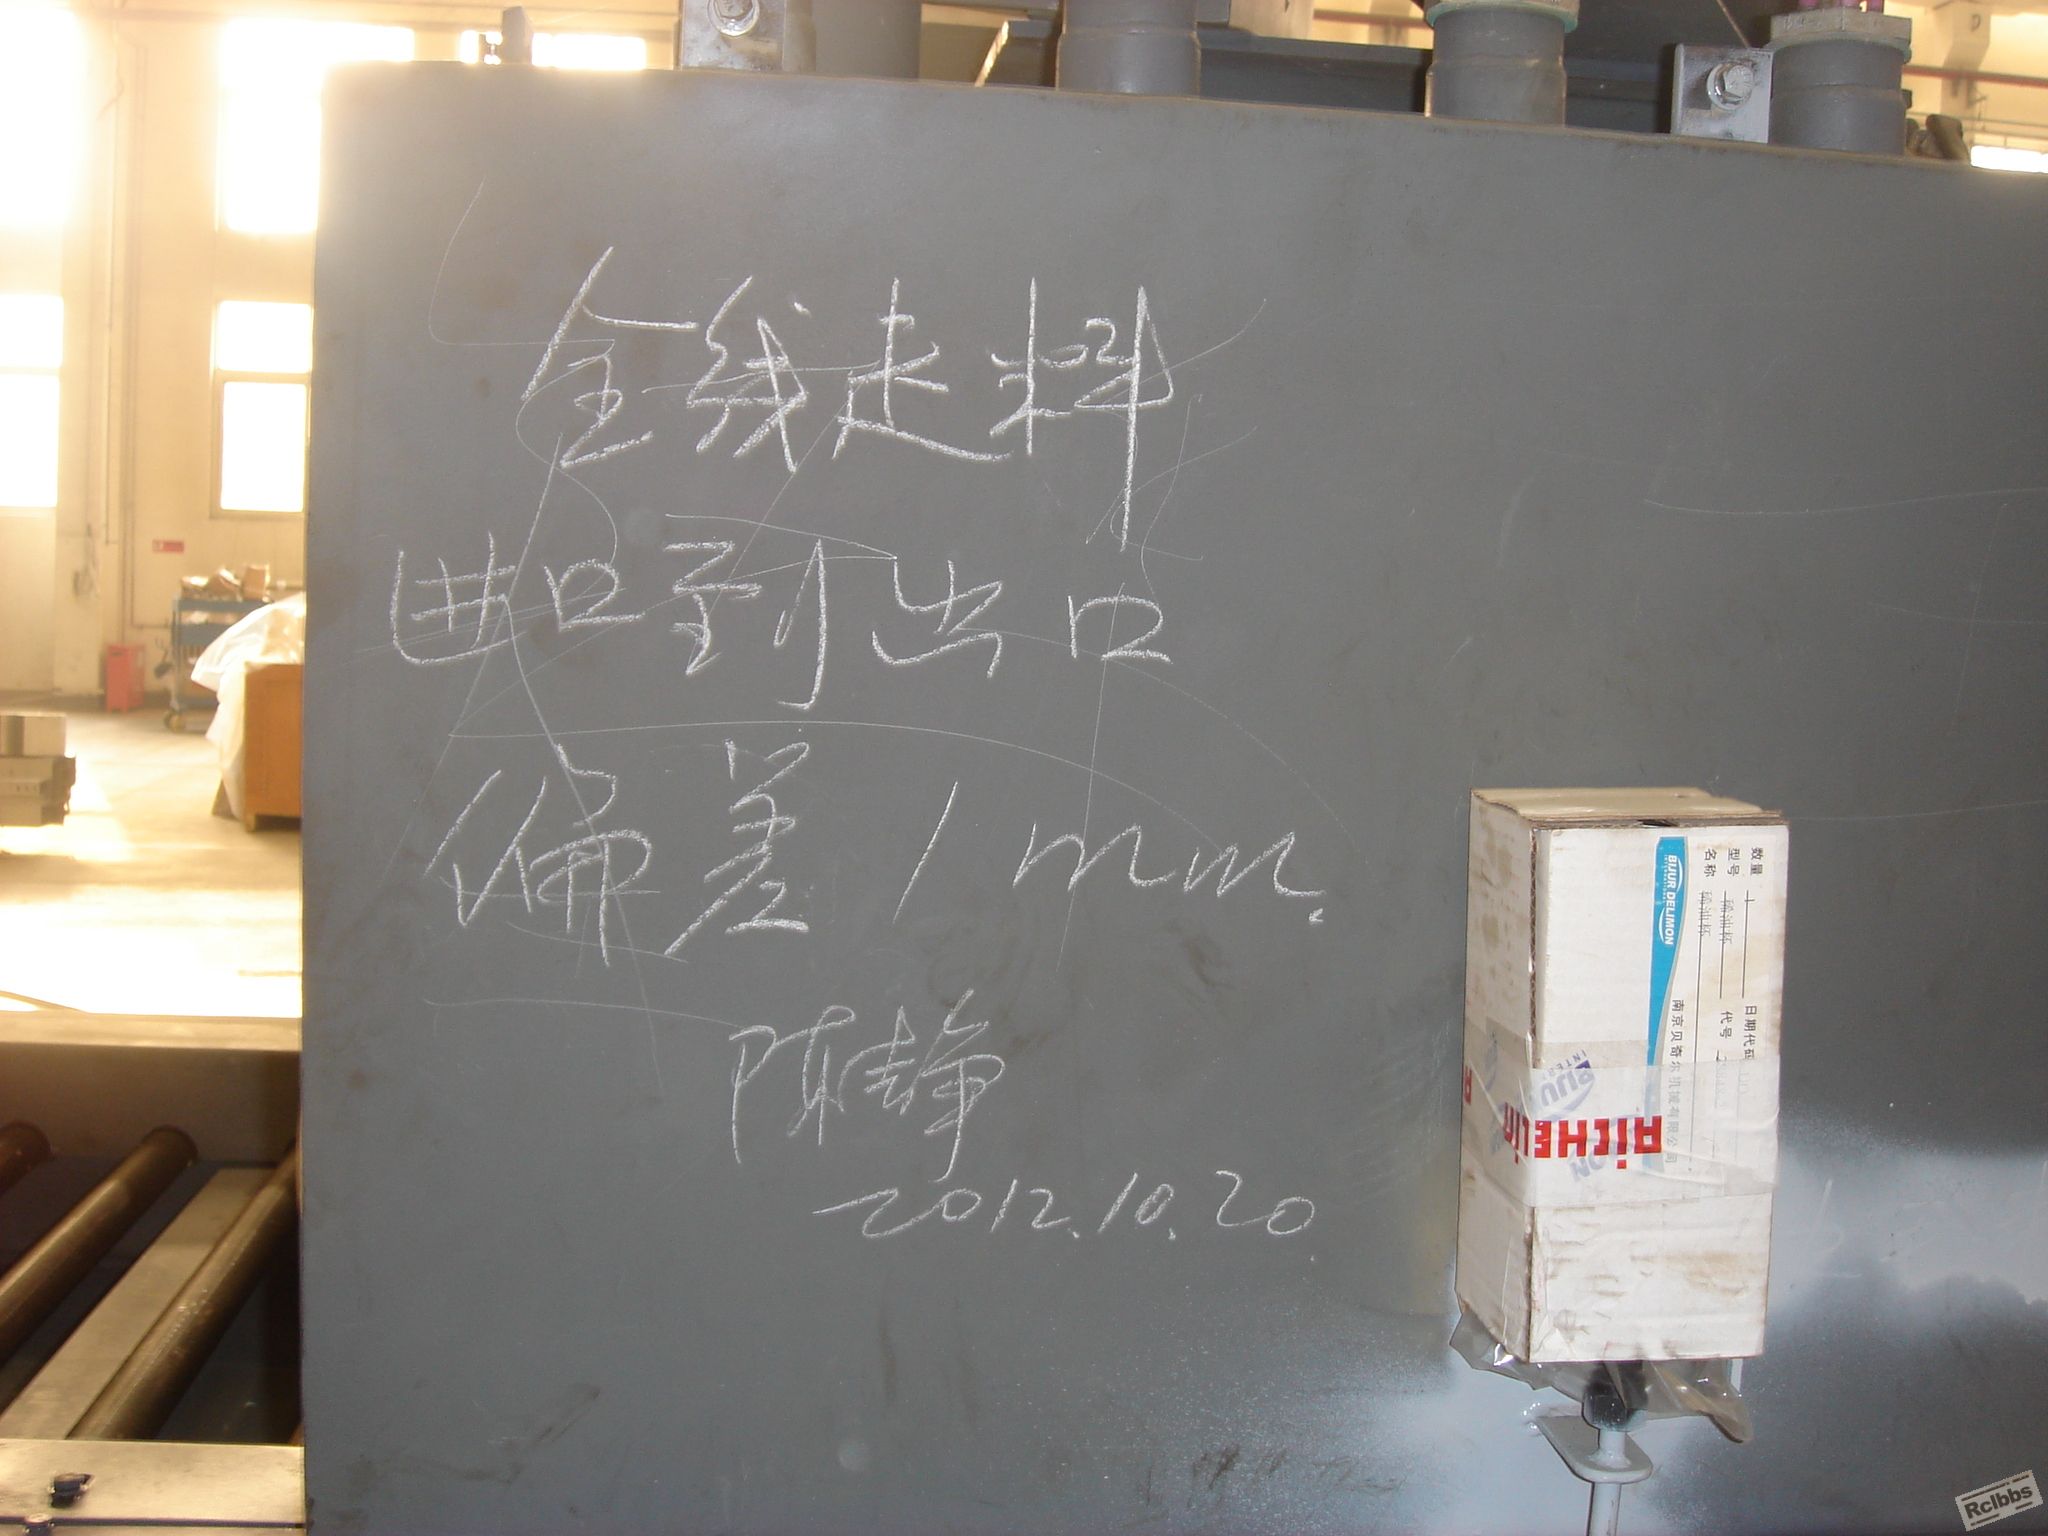 全线走料
进口到出口
偏差1mm.
陈静
2012.10.20.
数量 1 日期代码
型号 稀油杯 代号
名称 稀油杯
BIJUR DELIMON
INTERNATIONAL
南京贝奇尔机械有限公司
RiCHELiN
Rclbbs